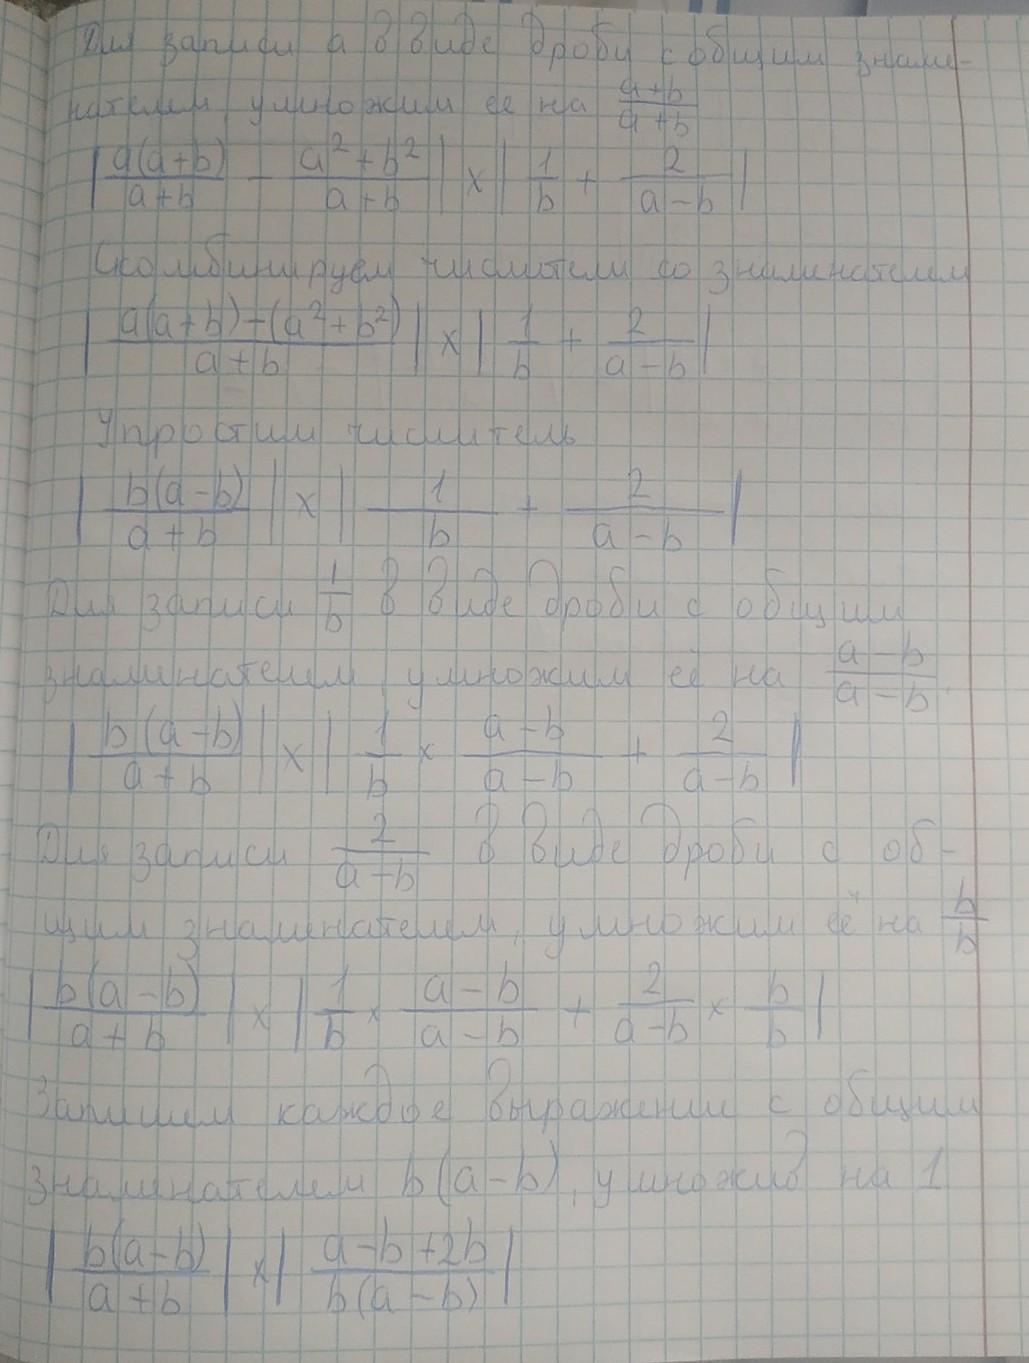 Для записи a в виде дроби с общим знаме-
нателем, умножим ее на (a+b)/(a+b)
|a(a+b)/(a+b) - (a²+b²)/(a+b)| × |1/b + 2/(a-b)|
Скомбинируем числители со знаминателем
|(a(a+b)-(a²+b²))/(a+b)| × |1/b + 2/(a-b)|
Упростим числитель
|b(a-b)/(a+b)| × |1/b + 2/(a-b)|
Для записи 1/b в виде дроби с общим
знаминателем, умножим её на (a-b)/(a-b).
|b(a-b)/(a+b)| × |1/b × (a-b)/(a-b) + 2/(a-b)|
Для записи 2/(a-b) в виде дроби с об-
щим знаменателем, умножим её на b/b
|b(a-b)/(a+b)| × |1/b × (a-b)/(a-b) + 2/(a-b) × b/b|
Запишем каждое выражении с общим
знаменателем b(a-b), умножив на 1
|b(a-b)/(a+b)| × |(a-b+2b)/(b(a-b))|